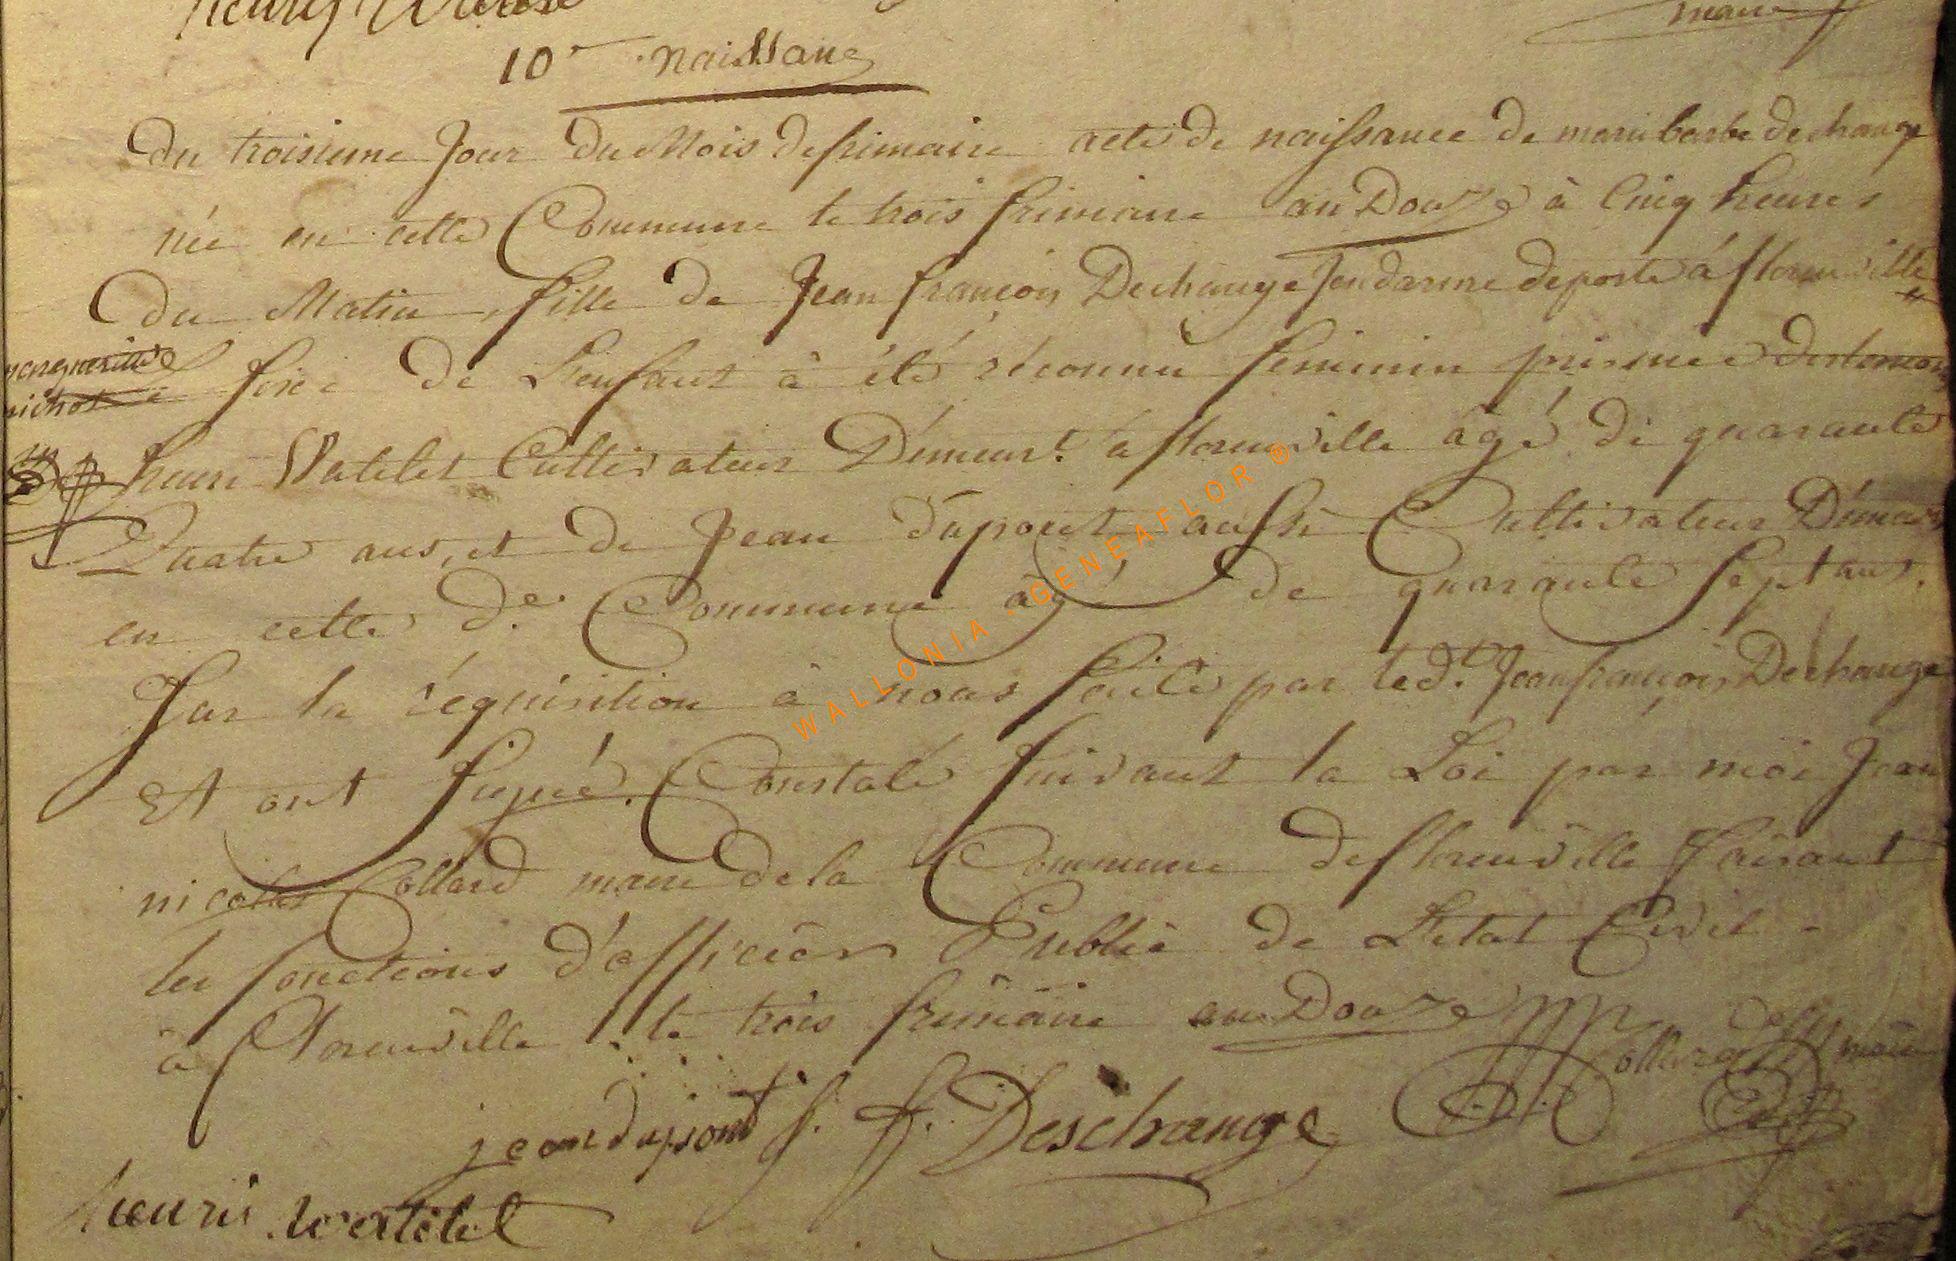 maire
10e naissance
Du troisieme Jour Du Mois De frimaire acte de naissance de marie barbe dechange
née en cette Commune le trois frimaire an Douze à Cinq heures
Du Matin, fille de Jean françois Dechange Jendarme de poste á florenville
margueritte
nichol
sexe de L'enfant à été réconnu feminin premier des temoin
henri Watelet Cultivateur Démeurt. á florenville âgé de quarante
Quatre ans, et de Jean dúpont aussi Cultivateur Démeur
en cette de. Commune âgé de quarante sept ans.
Sur la réquisition à nous faite par led.t Jean françois Dechange
Et ont signé. Constaté suivant la Loi par moi Jean
nicolas Collard maire de la Commune de florenville faisant
les fonctions d'officier Public de L'etat Civil -
á florenville le trois frimaire an Douze
Collard maire
jean dupont J. f. Deschange
henri watelet
WALLONIA - GENEAFLOR ®